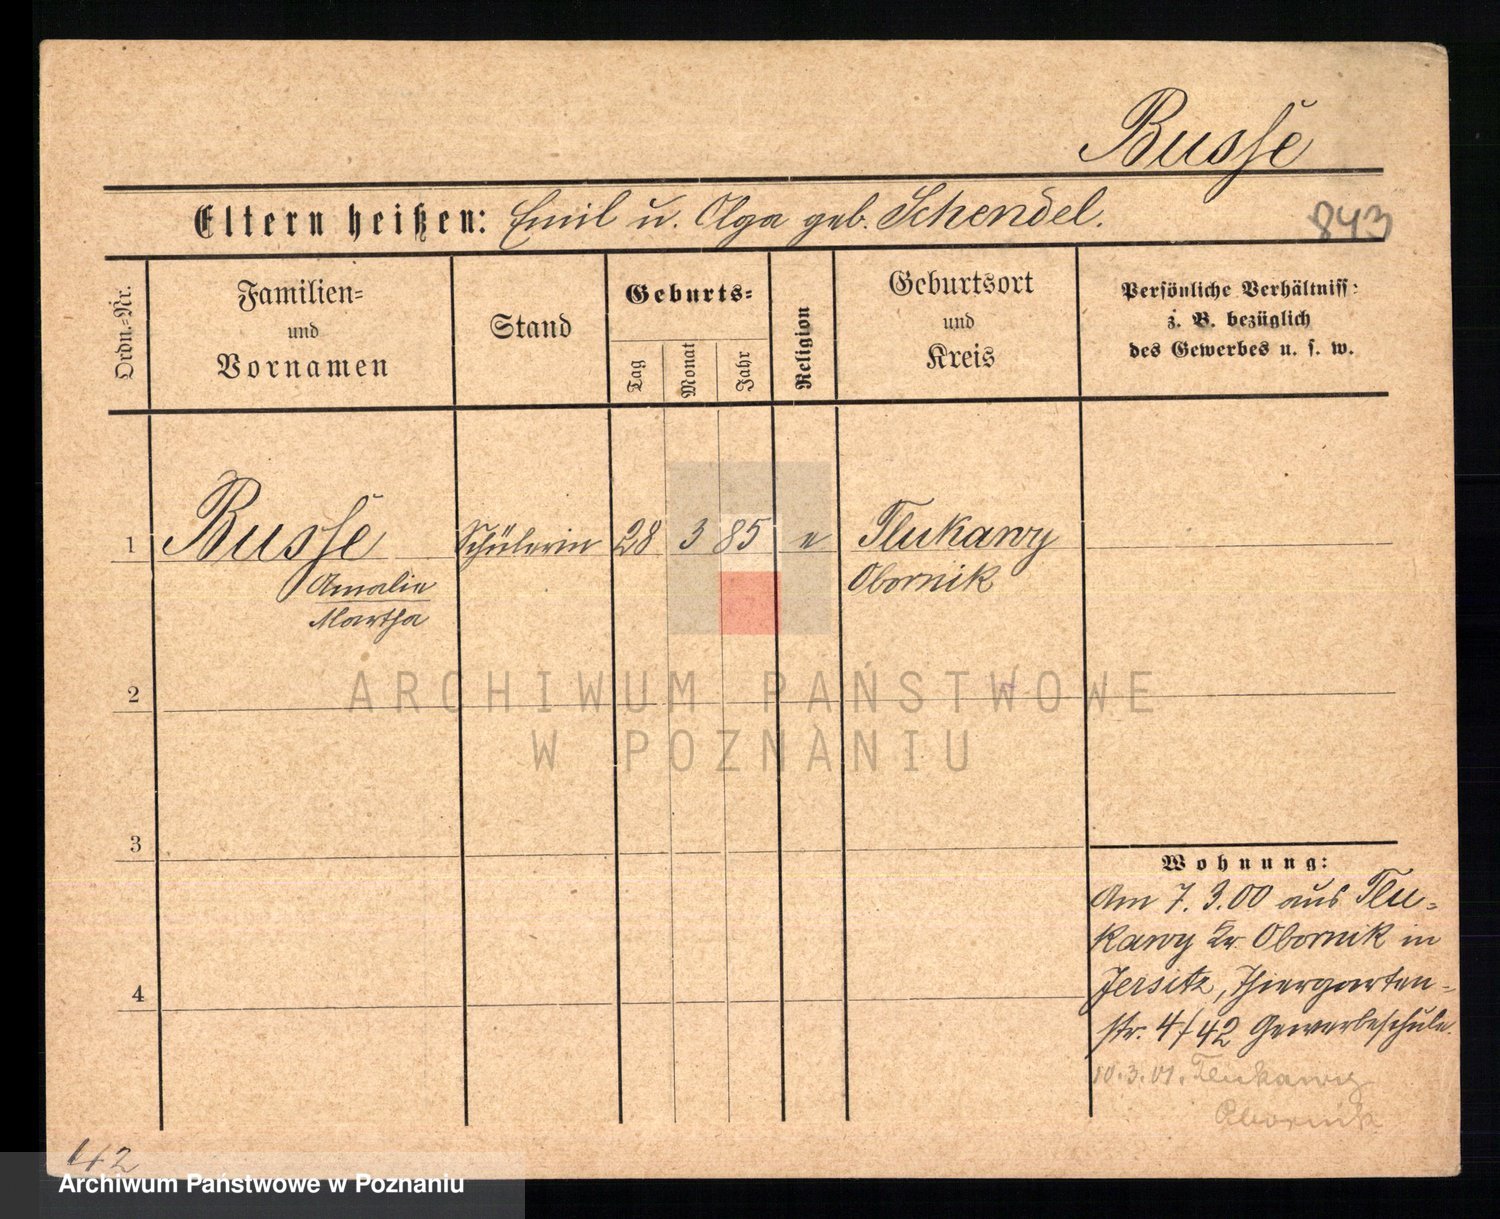 Busse
Eltern heißen: Emil u. Olga geb. Schendel.
843
Ordn.-Nr.
Familien-
und
Vornamen
Stand
Geburts-
Tag
Monat
Jahr
Religion
Geburtsort
und
Kreis
Persönliche Verhältniss:
z. B. bezüglich
des Gewerbes u. s. w.
1 Busse Schülerin 28 3 85 e Tlukawy
Amalie Obornik
Martha
2
ARCHIWUM PAŃSTWOWE
W POZNANIU
3
Wohnung:
Am 7.3.00 aus Tlu-
kawy Kr. Obornik in
Jersitz, Thiergarten-
str. 4/42 Gewerbeschule.
4
10.3.01. Tlukawy
Obornik
42
Archiwum Państwowe w Poznaniu